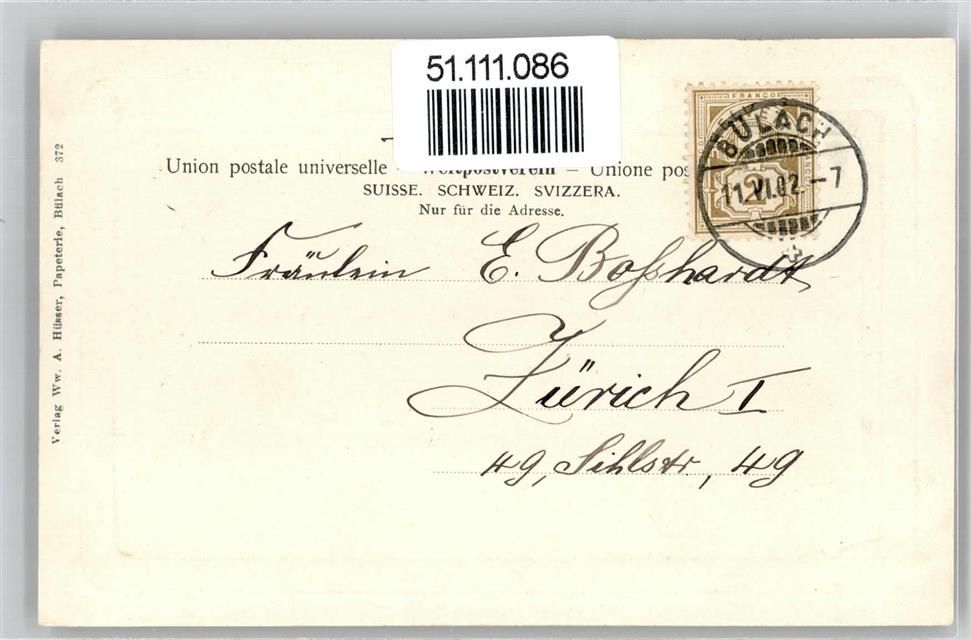 51.111.086
Union postale universelle – Weltpostverein – Unione pos
SUISSE. SCHWEIZ. SVIZZERA.
Nur für die Adresse.
FRANCO
BÜLACH
11.VI.02.–7
Fräulein E. Boßhardt
Zürich I
49, Sihlstr, 49
Verlag Ww. A. Hüsser, Papeterie, Bülach 372